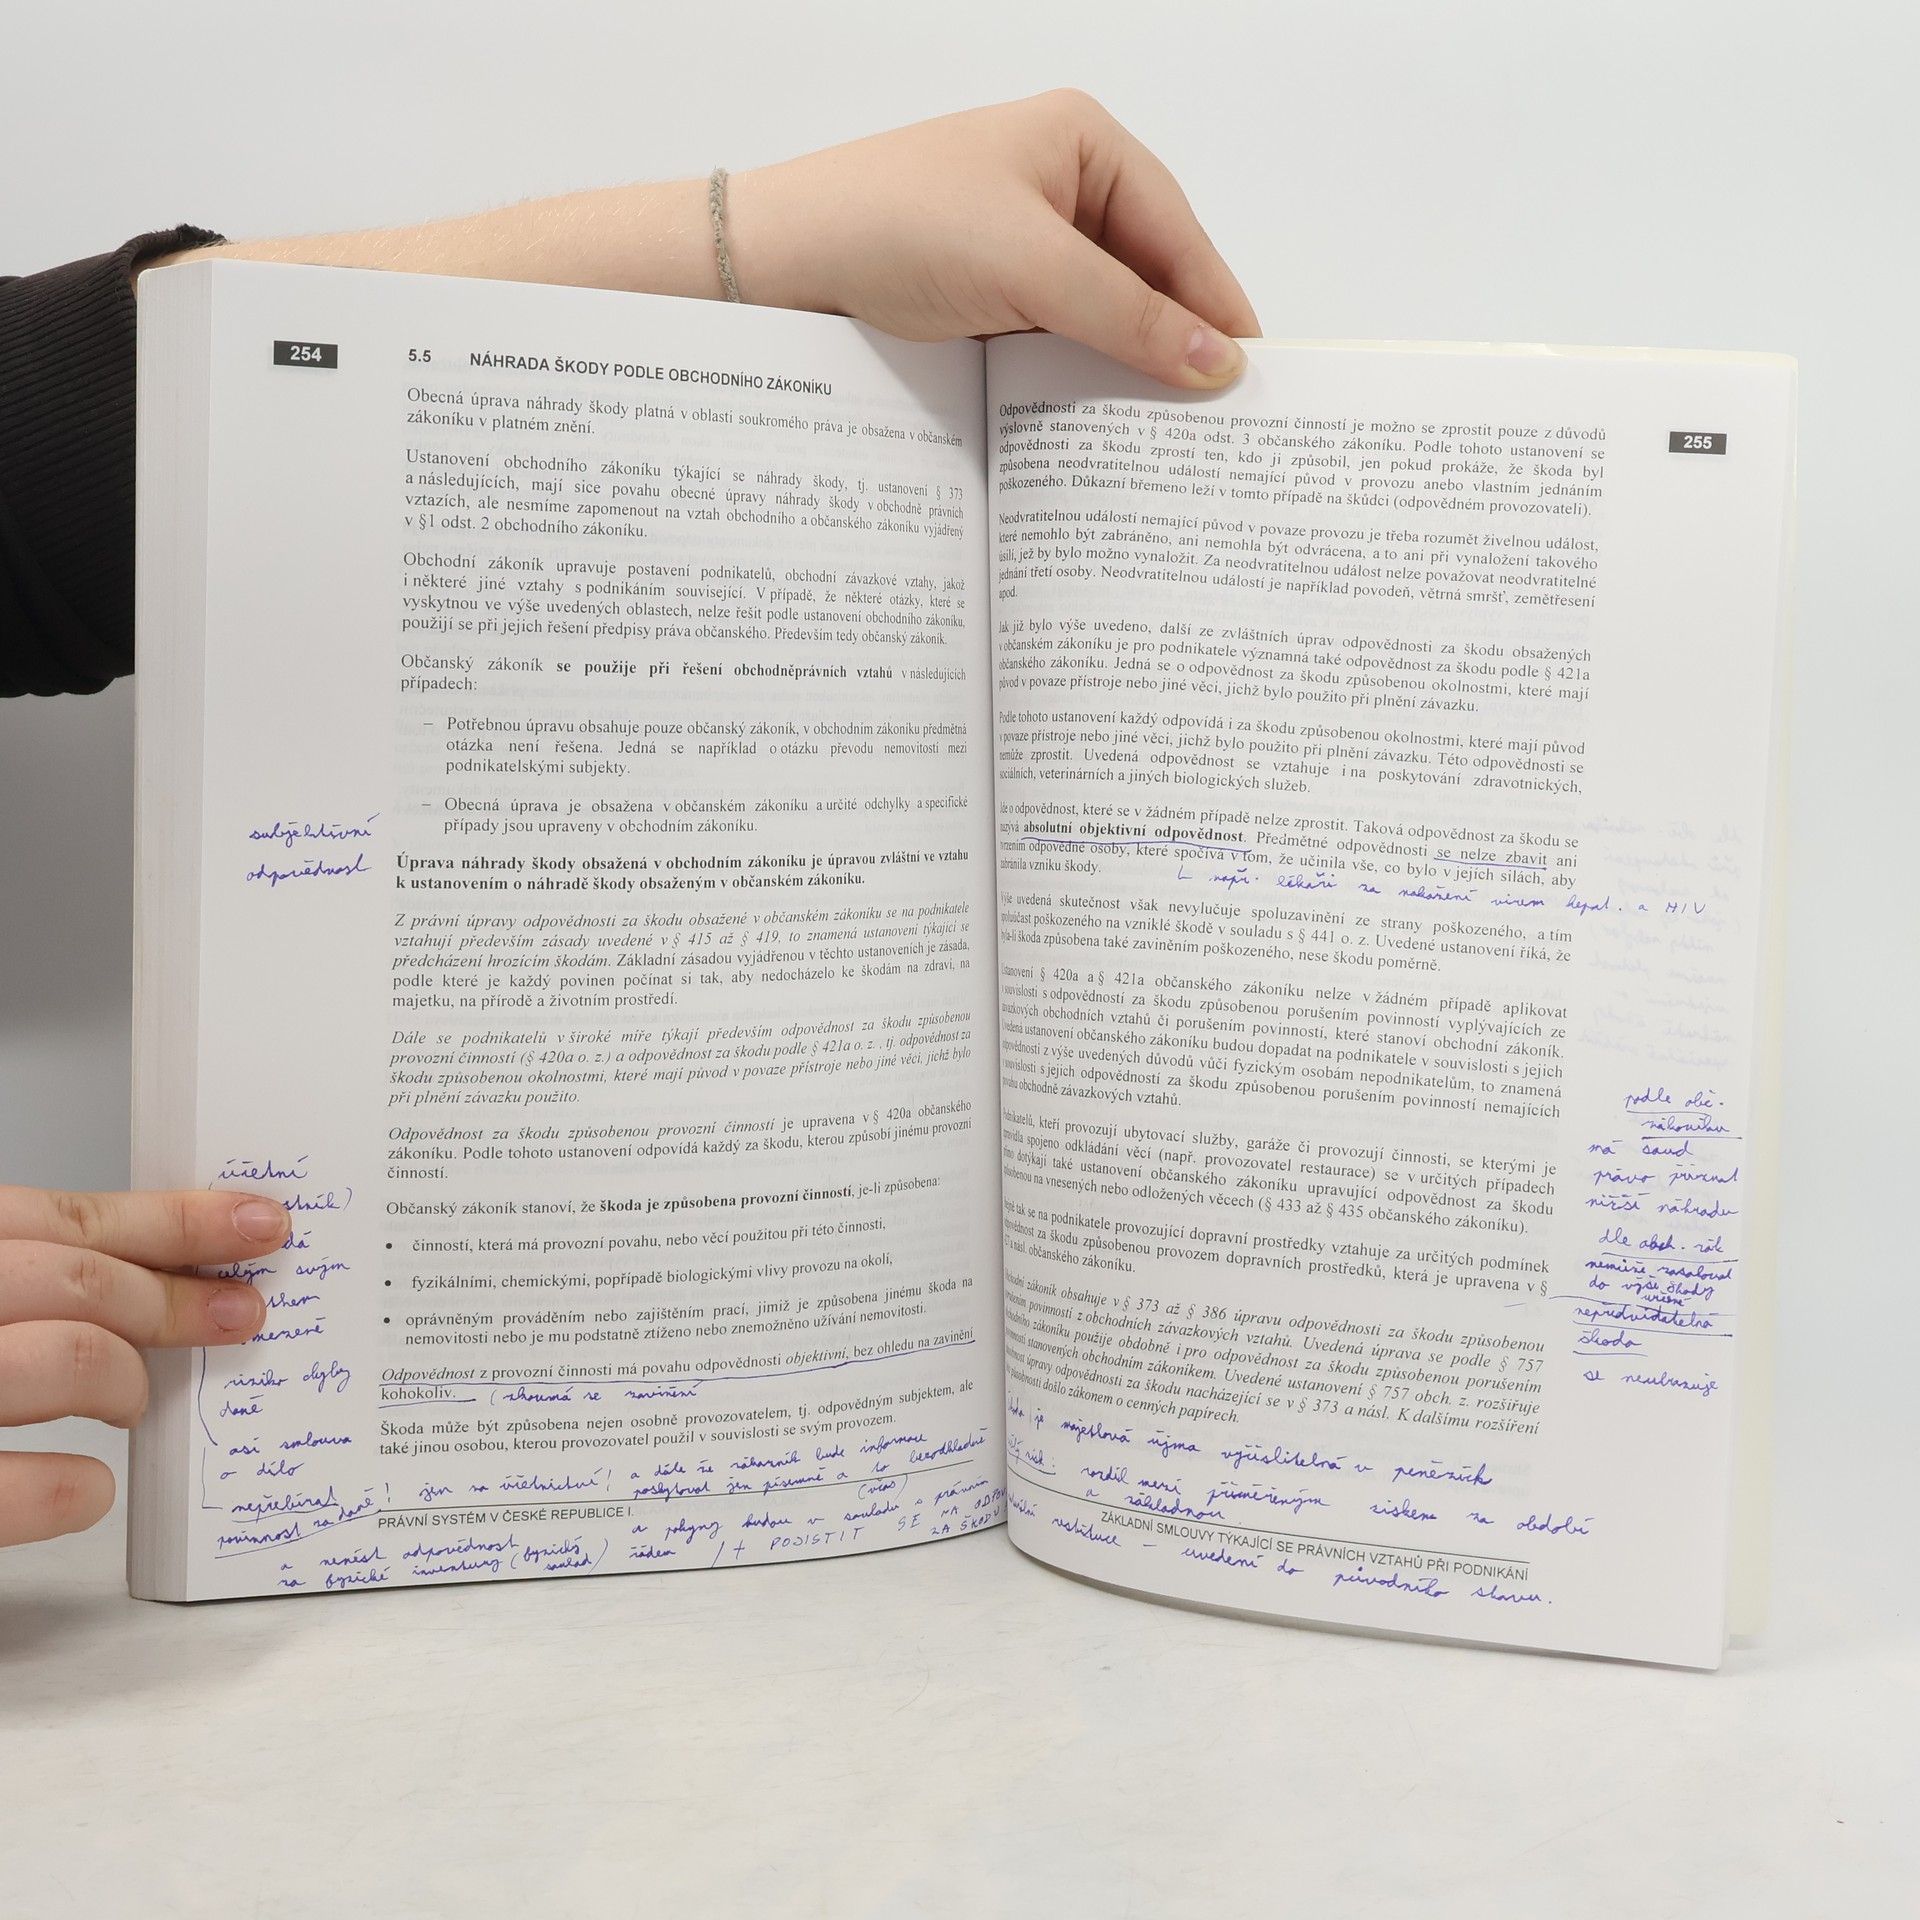 254
5.5 NÁHRADA ŠKODY PODLE OBCHODNÍHO ZÁKONÍKU
Obecná úprava náhrady škody platná v oblasti soukromého práva je obsažena v občanském
zákoníku v platném znění.
Ustanovení obchodního zákoníku týkající se náhrady škody, tj. ustanovení § 373
a následujících, mají sice povahu obecné úpravy náhrady škody v obchodně právních
vztazích, ale nesmíme zapomenout na vztah obchodního a občanského zákoníku vyjádřený
v §1 odst. 2 obchodního zákoníku.
Obchodní zákoník upravuje postavení podnikatelů, obchodní závazkové vztahy, jakož
i některé jiné vztahy s podnikáním související. V případě, že některé otázky, které se
vyskytnou ve výše uvedených oblastech, nelze řešit podle ustanovení obchodního zákoníku,
použijí se při jejich řešení předpisy práva občanského. Především tedy občanský zákoník.
Občanský zákoník se použije při řešení obchodněprávních vztahů v následujících
případech:
– Potřebnou úpravu obsahuje pouze občanský zákoník, v obchodním zákoníku předmětná
otázka není řešena. Jedná se například o otázku převodu nemovitostí mezi
podnikatelskými subjekty.
– Obecná úprava je obsažena v občanském zákoníku a určité odchylky a specifické
případy jsou upraveny v obchodním zákoníku.
subjektivní
odpovědnost
Úprava náhrady škody obsažená v obchodním zákoníku je úpravou zvláštní ve vztahu
k ustanovením o náhradě škody obsaženým v občanském zákoníku.
Z právní úpravy odpovědnosti za škodu obsažené v občanském zákoníku se na podnikatele
vztahují především zásady uvedené v § 415 až § 419, to znamená ustanovení týkající se
předcházení hrozícím škodám. Základní zásadou vyjádřenou v těchto ustanoveních je zásada,
podle které je každý povinen počínat si tak, aby nedocházelo ke škodám na zdraví, na
majetku, na přírodě a životním prostředí.
Dále se podnikatelů v široké míře týkají především odpovědnost za škodu způsobenou
provozní činností (§ 420a o. z.) a odpovědnost za škodu podle § 421a o. z. , tj. odpovědnost za
škodu způsobenou okolnostmi, které mají původ v povaze přístroje nebo jiné věci, jichž bylo
při plnění závazku použito.
Odpovědnost za škodu způsobenou provozní činností je upravena v § 420a občanského
zákoníku. Podle tohoto ustanovení odpovídá každý za škodu, kterou způsobí jinému provozní
činností.
Občanský zákoník stanoví, že škoda je způsobena provozní činností, je-li způsobena:
• činností, která má provozní povahu, nebo věcí použitou při této činnosti,
• fyzikálními, chemickými, popřípadě biologickými vlivy provozu na okolí,
• oprávněným prováděním nebo zajištěním prací, jimiž je způsobena jinému škoda na
nemovitosti nebo je mu podstatně ztíženo nebo znemožněno užívání nemovitosti.
Odpovědnost z provozní činnosti má povahu odpovědnosti objektivní, bez ohledu na zavinění
kohokoliv. (zkoumá se zavinění
Škoda může být způsobena nejen osobně provozovatelem, tj. odpovědným subjektem, ale
také jinou osobou, kterou provozovatel použil v souvislosti se svým provozem.
účetní
celým svým
riziko chyby
daně
asi smlouva
o dílo
nepřebírat ! jen na účetnictví! a dále že zákazník bude informace
povinnost za daně poskytovat jen písemně a to bezodkladně
(včas)
PRÁVNÍ SYSTÉM V ČESKÉ REPUBLICE I.
a nenést odpovědnost a pokyny budou v souladu s právním
za fyzické inventury (fyzický soulad) řádem / + POJISTIT SE NA
ZA ŠKODU
255
Odpovědnosti za škodu způsobenou provozní činností je možno se zprostit pouze z důvodů
výslovně stanovených v § 420a odst. 3 občanského zákoníku. Podle tohoto ustanovení se
odpovědnosti za škodu zprostí ten, kdo ji způsobil, jen pokud prokáže, že škoda byl
způsobena neodvratitelnou událostí nemající původ v provozu anebo vlastním jednáním
poškozeného. Důkazní břemeno leží v tomto případě na škůdci (odpovědném provozovateli).
Neodvratitelnou událostí nemající původ v povaze provozu je třeba rozumět živelnou událost,
které nemohlo být zabráněno, ani nemohla být odvrácena, a to ani při vynaložení takového
úsilí, jež by bylo možno vynaložit. Za neodvratitelnou událost nelze považovat neodvratitelné
jednání třetí osoby. Neodvratitelnou událostí je například povodeň, větrná smršť, zemětřesení
apod.
Jak již bylo výše uvedeno, další ze zvláštních úprav odpovědnosti za škodu obsažených
v občanském zákoníku je pro podnikatele významná také odpovědnost za škodu podle § 421a
občanského zákoníku. Jedná se o odpovědnost za škodu způsobenou okolnostmi, které mají
původ v povaze přístroje nebo jiné věci, jichž bylo použito při plnění závazku.
Podle tohoto ustanovení každý odpovídá i za škodu způsobenou okolnostmi, které mají původ
v povaze přístroje nebo jiné věci, jichž bylo použito při plnění závazku. Této odpovědnosti se
nemůže zprostit. Uvedená odpovědnost se vztahuje i na poskytování zdravotnických,
sociálních, veterinárních a jiných biologických služeb.
Jde o odpovědnost, které se v žádném případě nelze zprostit. Taková odpovědnost za škodu se
nazývá absolutní objektivní odpovědnost. Předmětné odpovědnosti se nelze zbavit ani
tvrzením odpovědné osoby, které spočívá v tom, že učinila vše, co bylo v jejích silách, aby
zabránila vzniku škody.
např. lékaři za nakažení virem hepat. a HIV
Výše uvedená skutečnost však nevylučuje spoluzavinění ze strany poškozeného, a tím
spoluúčast poškozeného na vzniklé škodě v souladu s § 441 o. z. Uvedené ustanovení říká, že
byla-li škoda způsobena také zaviněním poškozeného, nese škodu poměrně.
Ustanovení § 420a a § 421a občanského zákoníku nelze v žádném případě aplikovat
v souvislosti s odpovědností za škodu způsobenou porušením povinností vyplývajících ze
závazkových obchodních vztahů či porušením povinností, které stanoví obchodní zákoník.
Uvedená ustanovení občanského zákoníku budou dopadat na podnikatele v souvislosti s jejich
odpovědností z výše uvedených důvodů vůči fyzickým osobám nepodnikatelům, to znamená
v souvislosti s jejich odpovědností za škodu způsobenou porušením povinností nemajících
povahu obchodně závazkových vztahů.
Podnikatelů, kteří provozují ubytovací služby, garáže či provozují činnosti, se kterými je
zpravidla spojeno odkládání věcí (např. provozovatel restaurace) se v určitých případech
přímo dotýkají také ustanovení občanského zákoníku upravující odpovědnost za škodu
způsobenou na vnesených nebo odložených věcech (§ 433 až § 435 občanského zákoníku).
Stejně tak se na podnikatele provozující dopravní prostředky vztahuje za určitých podmínek
odpovědnost za škodu způsobenou provozem dopravních prostředků, která je upravena v §
427 a násl. občanského zákoníku.
Obchodní zákoník obsahuje v § 373 až § 386 úpravu odpovědnosti za škodu způsobenou
porušením povinností z obchodních závazkových vztahů. Uvedená úprava se podle § 757
obchodního zákoníku použije obdobně i pro odpovědnost za škodu způsobenou porušením
povinností stanovených obchodním zákoníkem. Uvedené ustanovení § 757 obch. z. rozšiřuje
možnost úpravy odpovědnosti za škodu nacházející se v § 373 a násl. K dalšímu rozšíření
působnosti došlo zákonem o cenných papírech.
podle obč.
zákoníku
má soud
právo přiznat
nižší náhradu
dle obch. zák
nemůže zasahovat
do výše škody
určené
nepředvídatelná
škoda
se neuhrazuje
škoda je majetková újma vyčíslitelná v penězích
ušlý zisk: rozdíl mezi přiměřeným ziskem za období
a základnou
ZÁKLADNÍ SMLOUVY TÝKAJÍCÍ SE PRÁVNÍCH VZTAHŮ PŘI PODNIKÁNÍ
restituce – uvedení do původního stavu.